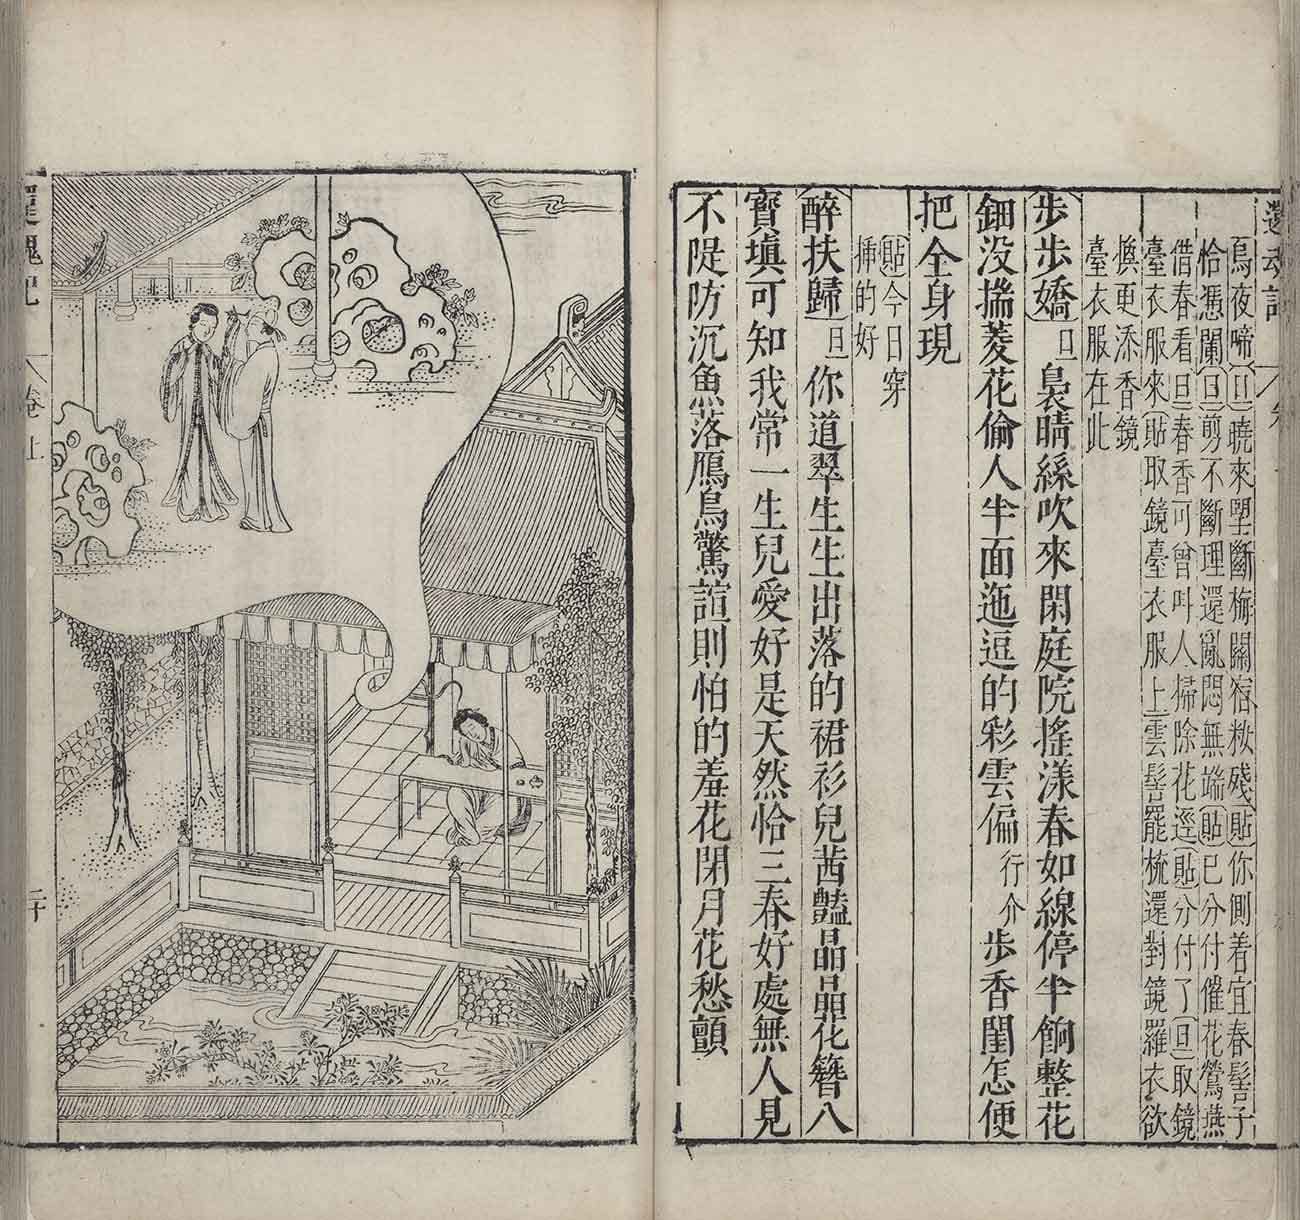 還魂記
烏夜啼〔旦〕曉來望斷梅關宿粧殘〔貼〕你側着宜春髻子
恰凭闌〔旦〕剪不斷理還亂悶無端〔貼〕已分付催花鶯燕
借春看〔旦〕春香可曾叫人掃除花逕〔貼〕分付了〔旦〕取鏡
臺衣服來〔貼取鏡臺衣服上〕雲髻罷梳還對鏡羅衣欲
換更添香鏡
臺衣服在此
步步嬌〔旦〕裊晴絲吹來閑庭院搖漾春如線停半餉整花
鈿没揣菱花偷人半面迤逗的彩雲偏行介步香閨怎便
把全身現
〔貼〕今日穿
插的好
醉扶歸〔旦〕你道翠生生出落的裙衫兒茜豔晶晶花簪八
寶填可知我常一生兒愛好是天然恰三春好處無人見
不隄防沉魚落鴈鳥驚諠則怕的羞花閉月花愁顫
還魂記
卷上
二十